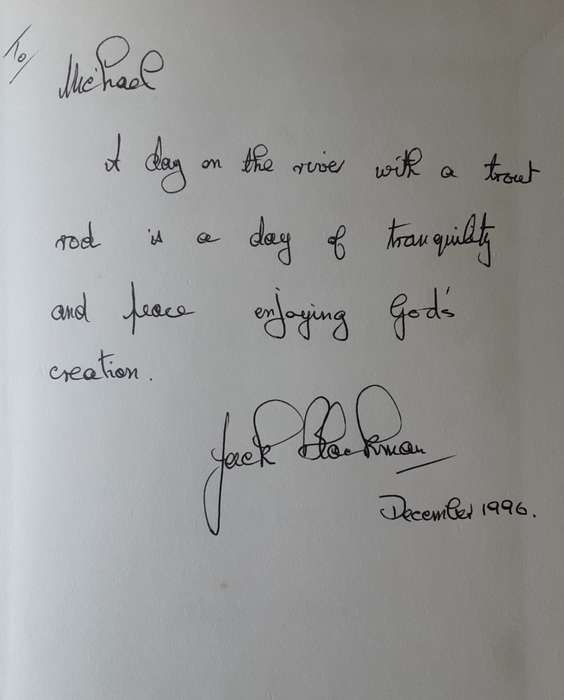 To/
Michael
A day on the river with a trout
rod is a day of tranquility
and peace enjoying God's
creation.
Jack Blackman
December 1996.